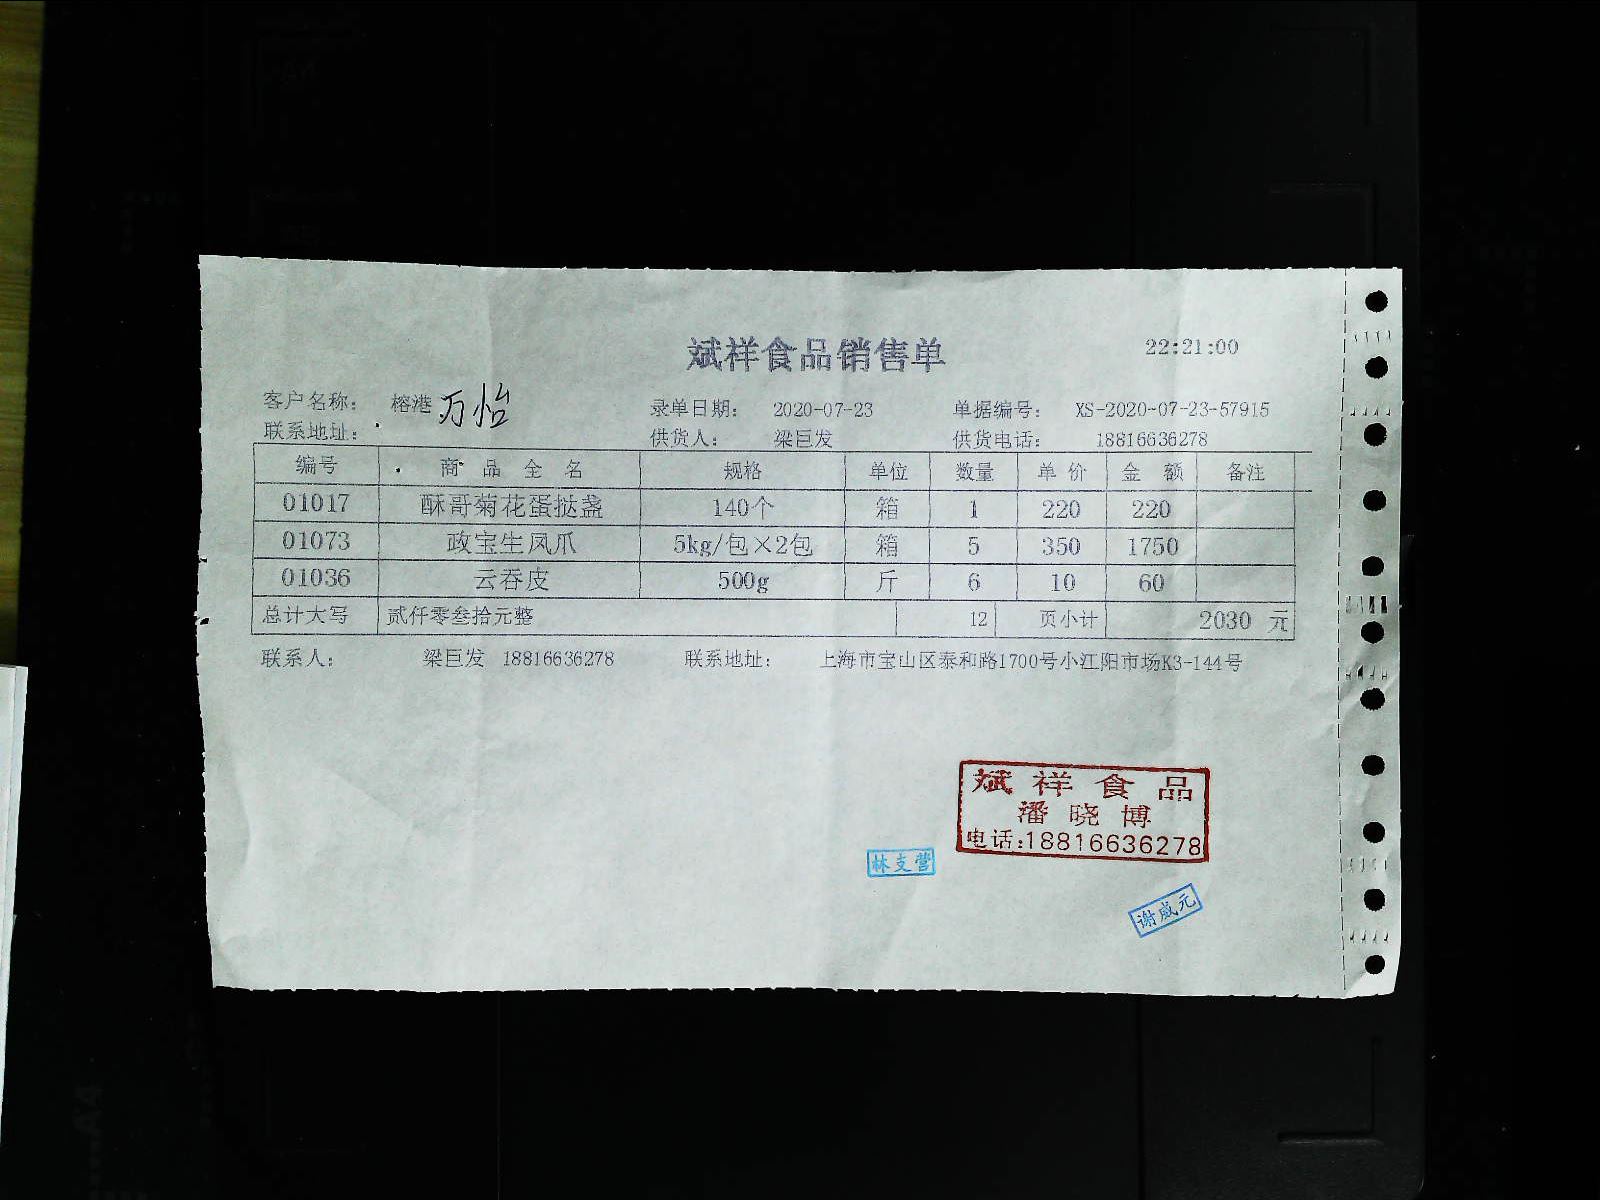 斌祥食品销售单 22:21:00
客户名称: 榕港 万怡 录单日期: 2020-07-23 单据编号: XS-2020-07-23-57915
联系地址: 供货人: 梁巨发 供货电话: 18816636278
编号 商品全名 规格 单位 数量 单价 金额 备注
01017 酥哥菊花蛋挞盏 140个 箱 1 220 220
01073 政宝生凤爪 5kg/包×2包 箱 5 350 1750
01036 云吞皮 500g 斤 6 10 60
总计大写 贰仟零叁拾元整 12 页小计 2030 元
联系人: 梁巨发 18816636278 联系地址: 上海市宝山区泰和路1700号小江阳市场K3-144号
斌祥食品
潘晓博
电话:18816636278
林支营
谢威元